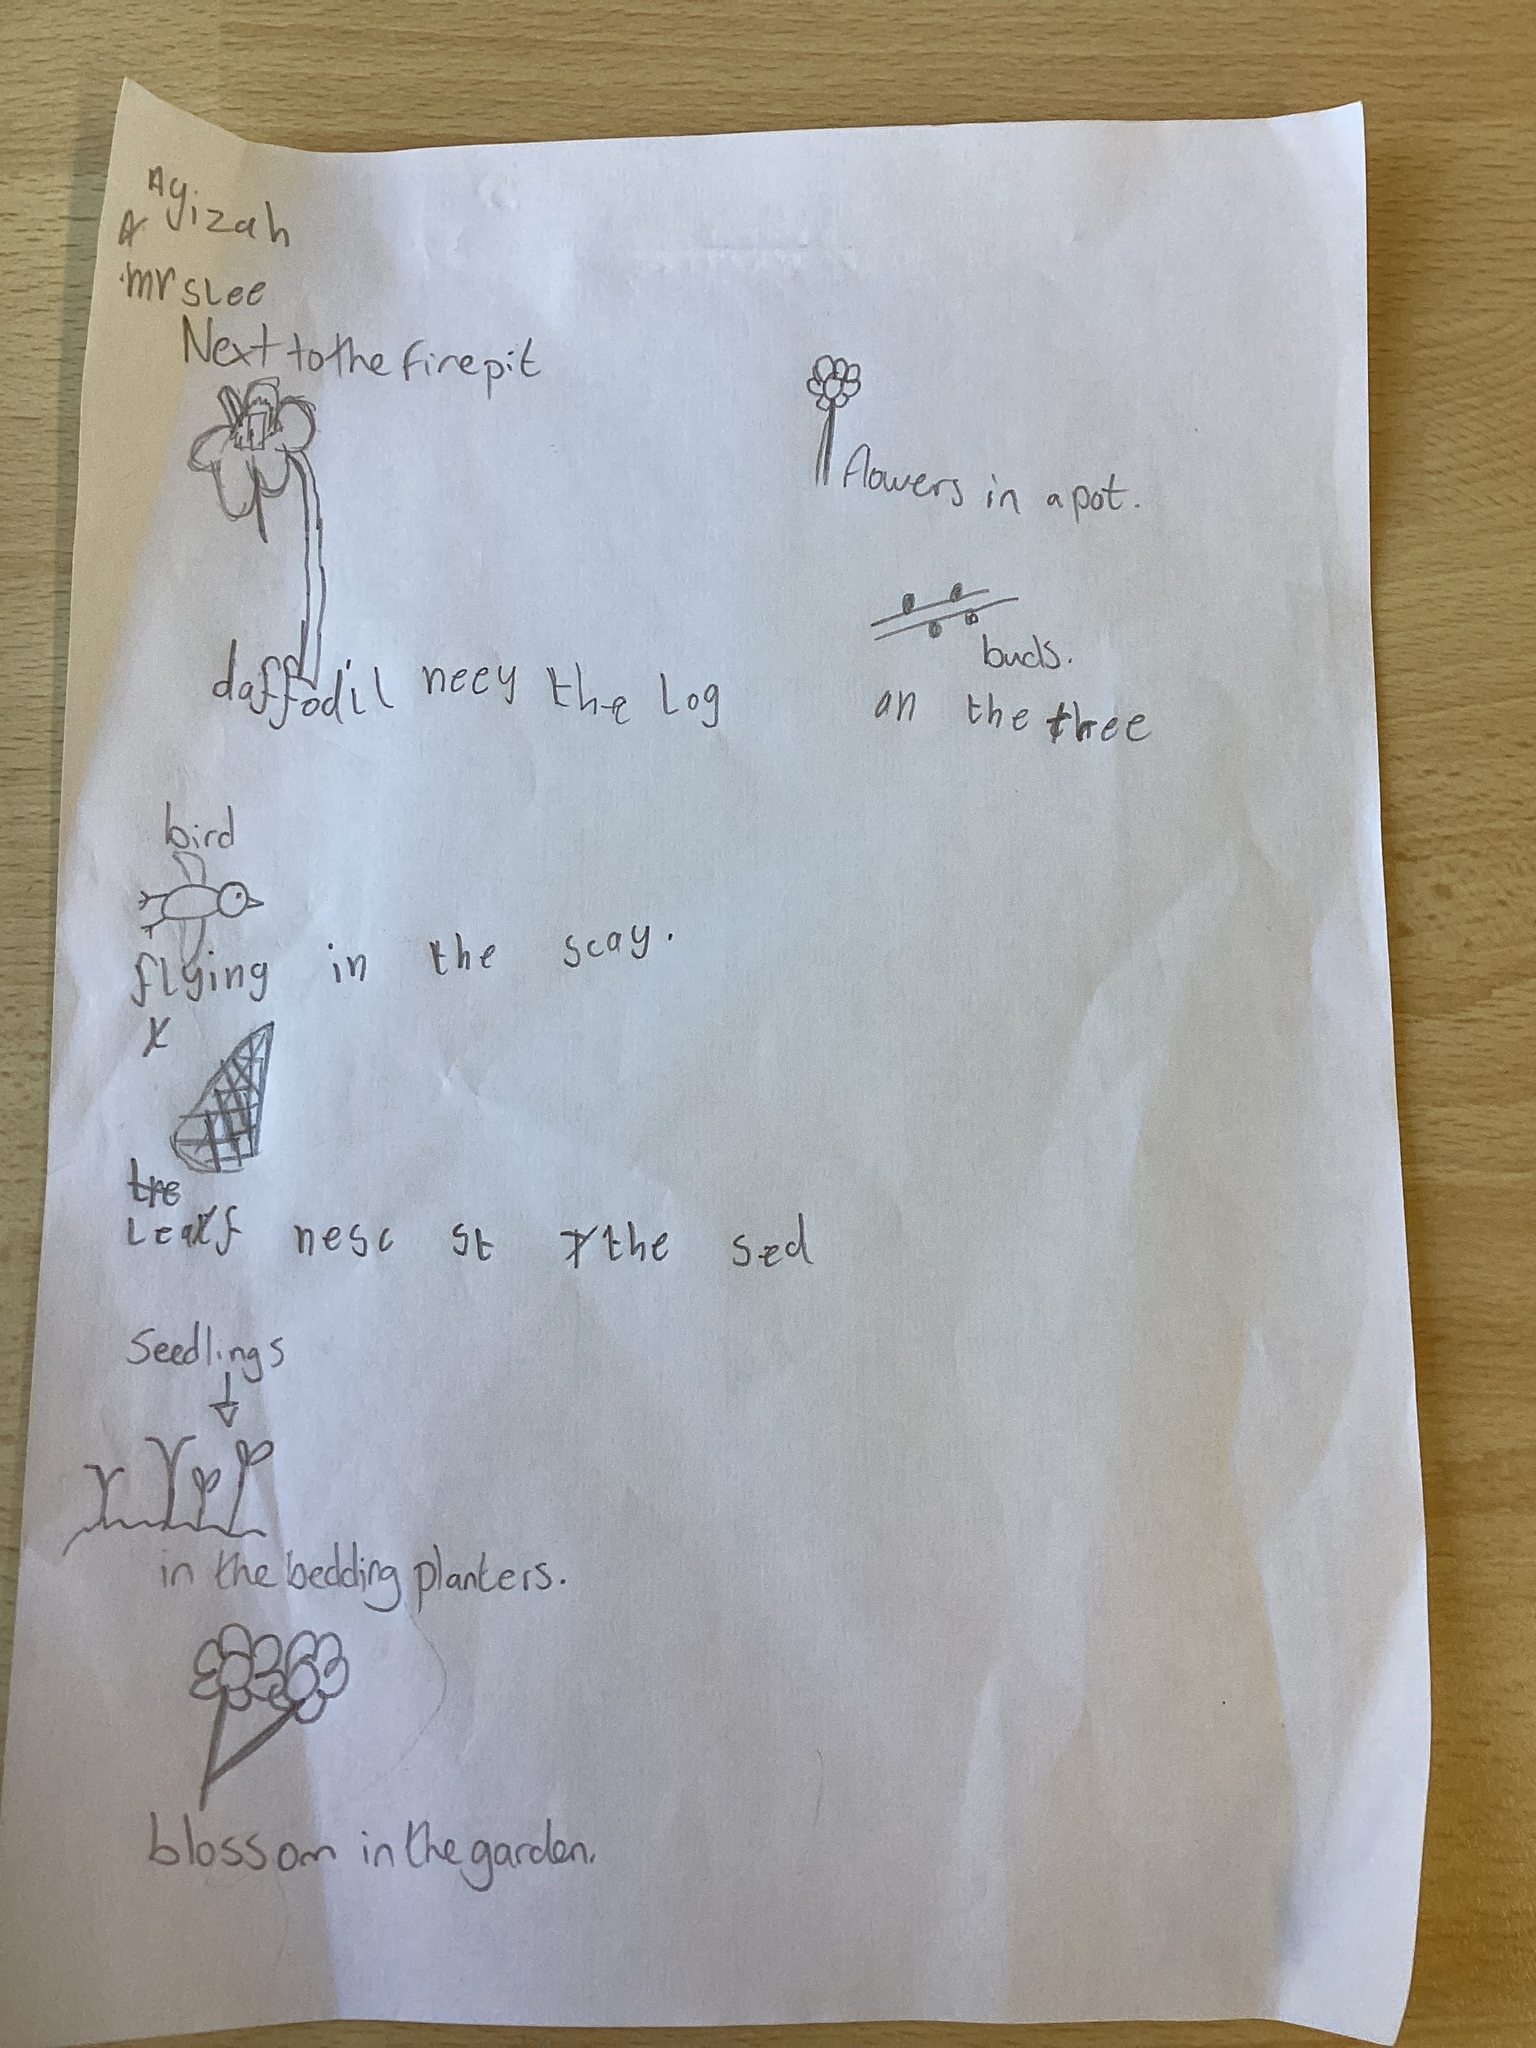 Ayizah
A
mr slee
Next to the firepit
flowers in a pot.
buds.
daffodil neey the log
an the three
bird
flying in the scay.
tre
Leaf nesc st the sed
Seedlings
in the bedding planters.
blossom in the garden.